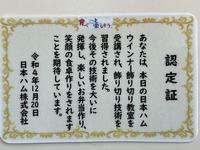 認定証
あなたは、本日の日本ハム
ウインナー飾り切り教室を
受講され、飾り切り技術を
習得されました。
今後その技術を大いに
発揮し、楽しいお弁当作り、
笑顔の食卓作りをされます
ことを期待しています。
令和4年12月20日
日本ハム株式会社